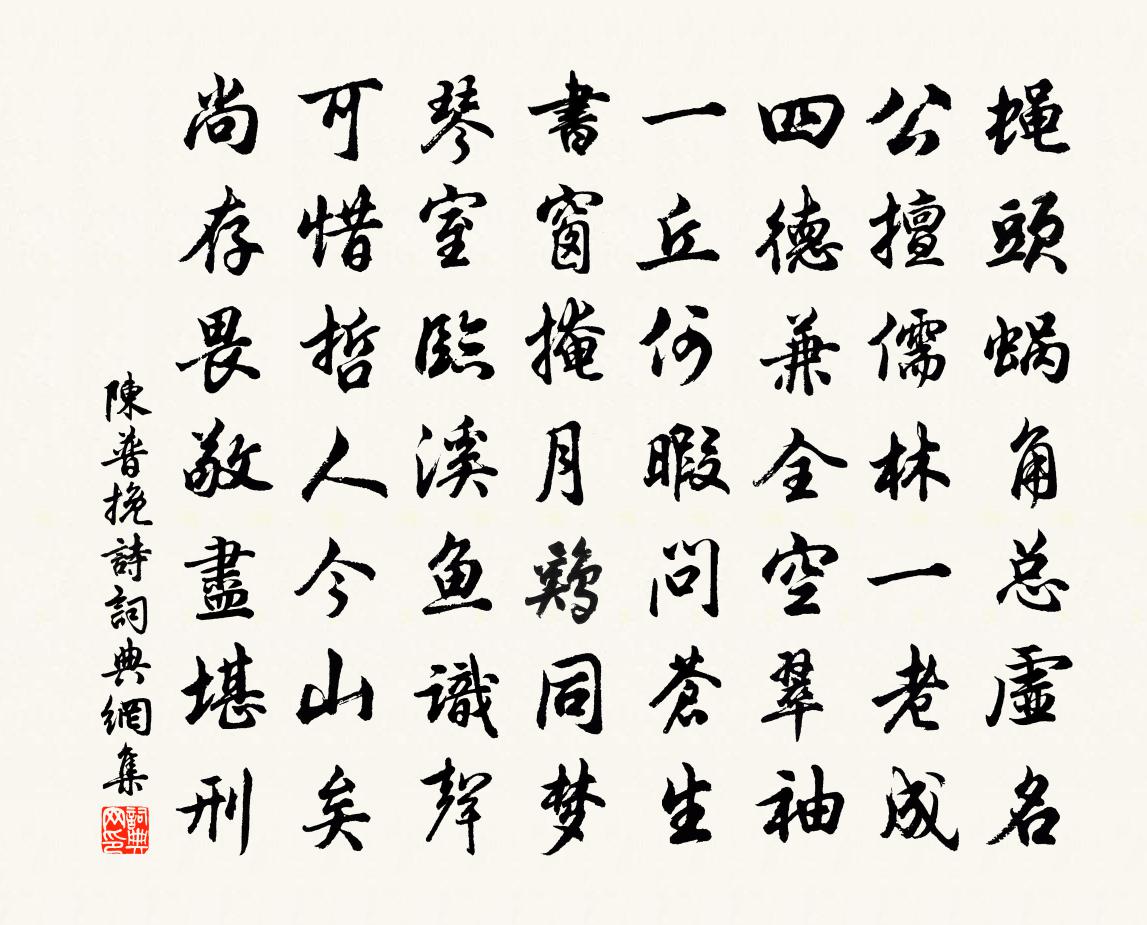 蝇頭蜗角总虚名
公擅儒林一老成
四德兼全空翠袖
一丘何暇問蒼生
書窗掩月鷄同梦
琴室臨溪鱼識聲
可惜哲人今山矣
尚存畏敬盡堪刑
陳普挽詩詞典網集
詞典网印